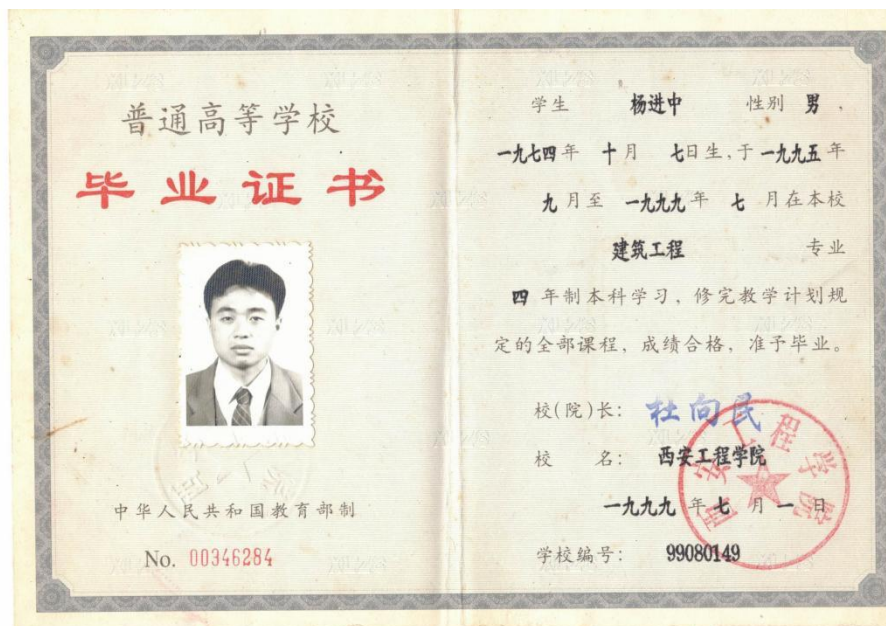 普通高等学校
毕业证书
中华人民共和国教育部制
No. 00346284
学生 杨进中 性别 男，
一九七四年 十月 七日生，于一九九五年
九月至 一九九九年 七 月在本校
建筑工程 专业
四 年制本科学习，修完教学计划规
定的全部课程，成绩合格，准予毕业。
校(院)长： 杜向民
校 名： 西安工程学院
一九九九年 七 月 一 日
学校编号： 99080149
西安工程学院